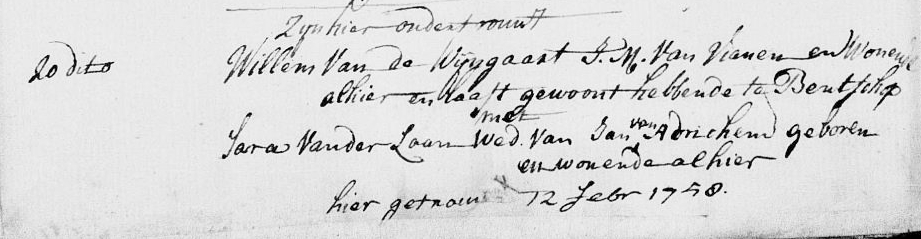 Zijn hier ondertrouwt
20 dito Willem Van de Wijngaart J. M. Van Vianen en Wonende
alhier en laast gewoont hebbende te Bentschop
met
Sara Vander Laan Wed. Van Jan van Adrichem geboren
en wonende alhier
hier getrouwt 12 Febr 1758.